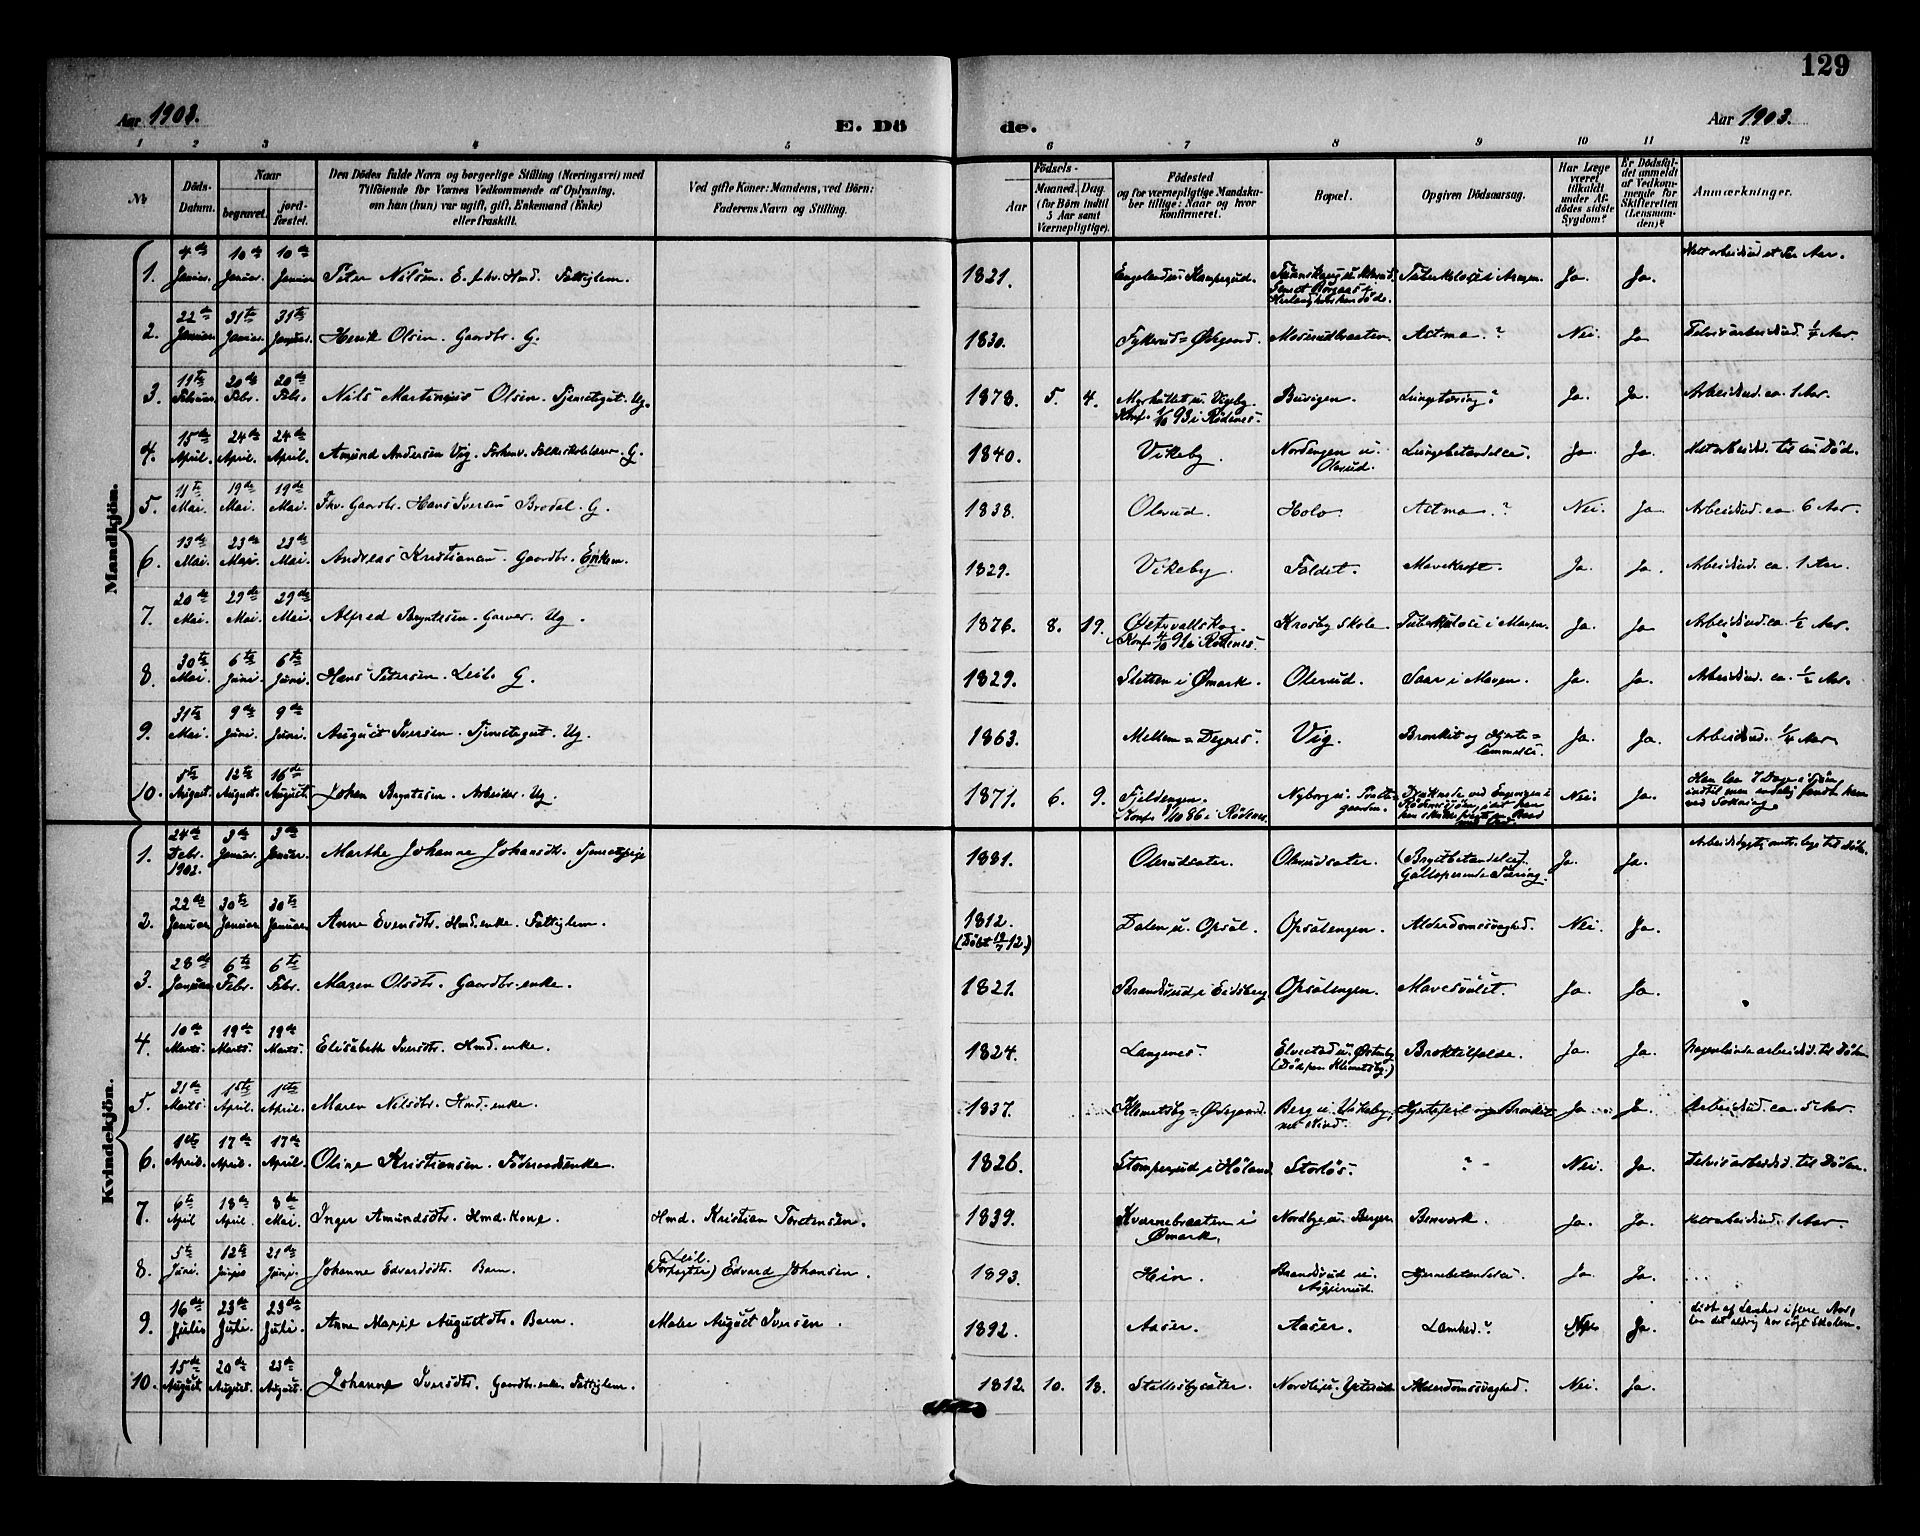 129
Aar 1903. E. Dö de. Aar 1903.
1 2 3 4 5 6 7 8 9 10 11 12
№ Döds-Datum. Naar begravet. jordfæstet. Den Dödes fulde Navn og borgerlige Stilling (Næringsvei) med Tilföiende for Voxnes Vedkommende af Oplysning, om han (hun) var ugift, gift, Enkemand (Enke) eller fraskilt. Ved gifte Koner: Mandens, ved Börn: Faderens Navn og Stilling. Födsels- Aar Maaned. Dag. (for Börn indtil 5 Aar samt Værnepligtige). Födested og for værnepligtige Mandskaber tillige: Naar og hvor konfirmeret. Bopæl. Opgiven Dödsaarsag. Har Læge været tilkaldt under Afdödes sidste Sygdom? Er Dödsfaldet anmeldt af Vedkommende for Skifteretten (Lensmanden)? Anmærkninger.
Mandkjön.
1. 4de Januar. 10de Januar. 10de Januar Peter Nilsen. Fattiglem. 1821. Ja. Ja.
2. 22de Januar. 31te Januar. 31te Januar. Henrik Olsen. Gaardbr. G. 1830. Moserudbraaten. Astma? Nei. Ja 1/4 Aar.
3. 11te Februar. 20de Febr. 20de Febr. Nils Martinius Olsen. Tjenestegut. Ug. 1878. 5. 4. Konf. 1/10 93 i Rødenes. Lungetæring? Ja. Ja. Arbeidsud. ca. 1 Aar.
4. 15de April. 24de April. 24de April. Amund Andersen Vig. Forhenv. Folkeskolelærer. G. 1840. Vikeby. Nordengen u. Olerud. Lungebetændelse. Ja. Ja.
5. 11te Mai. 19de Mai. 19de Mai. Fhv. Gaardbr. Hans Iversen Brodal. G. 1838. Olerud. Holo. Astma? Nei. Ja Arbeidsud. ca. 6 Aar.
6. 13de Mai. 23de Mai. 23de Mai. Andreas Kristiansen. Gaardbr. Enkem. 1829. Vikeby. Faldet. Mavekræft. Ja. Ja. Arbeidsud. ca. 1 Aar.
7. 20de Mai. 29de Mai. 29de Mai. Alfred Bryntesen. Garver. Ug. 1876. 8. 19. Østervallskog. Konf. 4/10 91 i Rødenes. Krosby skole. Tuberkulose i Maven. Ja. Ja Arbeidsud. ca. 1/2 Aar.
8. 30te Mai. 6te Juni. 6te Juni. Hans Petersen. Leil. G. 1829. Sletten i Ømark. Olerud. Saar i Maven. Ja. Ja. Arbeidsud. ca. 1/2 Aar.
9. 31te Mai. 9de Juni. 9de Juni. August Iversen. Tjenestegut. Ug. 1863. Mellem=Degnes. Vig. Bronkit og Hjerte=lammelse. Ja. Ja. Arbeidsud. 1/4 Aar
10. 5te August. 12te August. 16de August. Johan Bryntesen. Arbeider. Ug. 1871. 6. 9. Fjeldengen. Konf. 3/10 86 i Rødenes. Nyborg u. Druknede ved Nei. Ja. Han laa 7 Dage i Sjøen indtil man endelig fandt ham ved Sokning.
Kvindekjön.
1. 24de Debr. 1902. 3de Januar. 3de Januar. Marthe Johanne Johansdtr. Tjenestepige 1881. Olerudsæter. Olerudsæter. (Brystbetændelse). Galloperende Tæring. Ja. Ja.
2. 22de Januar 30te Januar 30te Januar. Anne Evensdtr. Hmd.enke. Fattiglem. 1812. (Døbt 19/7 12.) Dalen u. Opsal. Opsalengen. Alderdomssvaghed. Nei. Ja.
3. 28de Januar 6te Febr. 6te Febr. Maren Olsdtr. Gaardbr.enke. 1821. Brandsrud i Eidsberg. Opsalengen. Ja. Ja.
4. 10de Marts. 19de Marts. 19de Marts. Elisabeth Iversdtr. Hmd.enke. 1824. Langenes. Elvestad u. Østenby (Død paa Klemetsby.) Broktilfælde. Ja. Ja. Nogenlunde arbeidsd. til Døden
5. 21de Marts. 1ste April. 1ste April. Maren Nilsdtr. Hmd.enke. 1837. Klemetsby=Ødegaard. Berg u. Vikeby Hjertefeil og Bronkit Ja. Ja. Arbeidsud. ca. 5 Aar.
6. 1ste April. 17de April. 17de April. Oline Kristiansen. Föderaadsenke. 1826. Stomperud i Høland. Storløs. ? Nei. Ja. Delvis arbeidsd. til Døden.
7. 6te April 18de April. 8de Mai. Inger Amundsdtr. Hmd.Kone. Hmd. Kristian Torstensen. 1839. Kvernebraaten i Ømark. Nordbye u. Berger. Benværk. Ja. Ja. 1 Aar.
8. 5te Juni. 12te Juni 21de Juni. Johanne Edvardsdtr. Barn. Leil. (Forpagter) Edvard Johansen. 1893. Hien. Brandsrud u. Hjernebetændelse. Ja. Ja.
9. 16de Juli 23de Juli. 23de Juli. Anne Marie Augustdtr. Barn. Maler August Iversen. 1892. Aaser. Aaser. Lamhed.? Nei Ja.
10. 15de August. 20de August. 23de August. Johanne Iversdtr. Gaardbr.enke. Fattiglem. 1812. 10. 13. Stallesbysæter. Alderdomssvaghed. Nei. Ja.